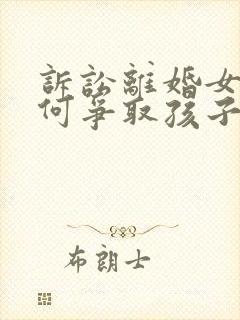 訴訟離婚女
何爭取孩子
布朗士